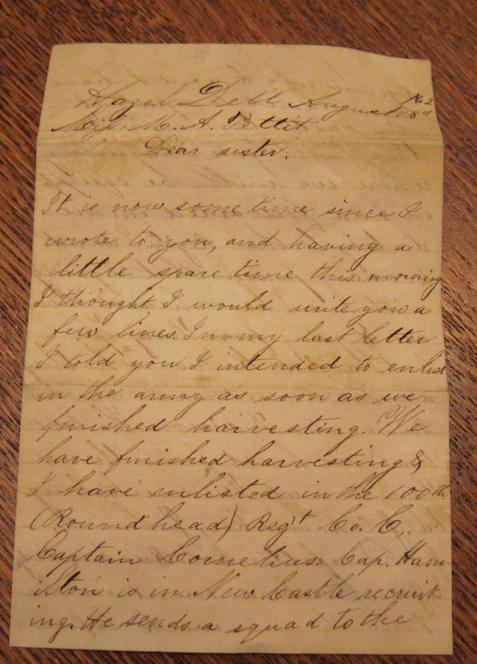 Hazel Dell August 18th /62
Miss. M. A. Pettit
Dear sister.
It is now some time since I
wrote to you, and having a
little spare time this morning
I thought I would write you a
few lines. In my last letter
I told you I intended to enlist
in the army as soon as we
finished harvesting. We
have finished harvesting &
I have enlisted in the 100th
(Roundhead) Reg't Co. C.
Captain Cornelius. Cap. Ham
ilton is in New Castle recruit
ing. He sends a squad to the